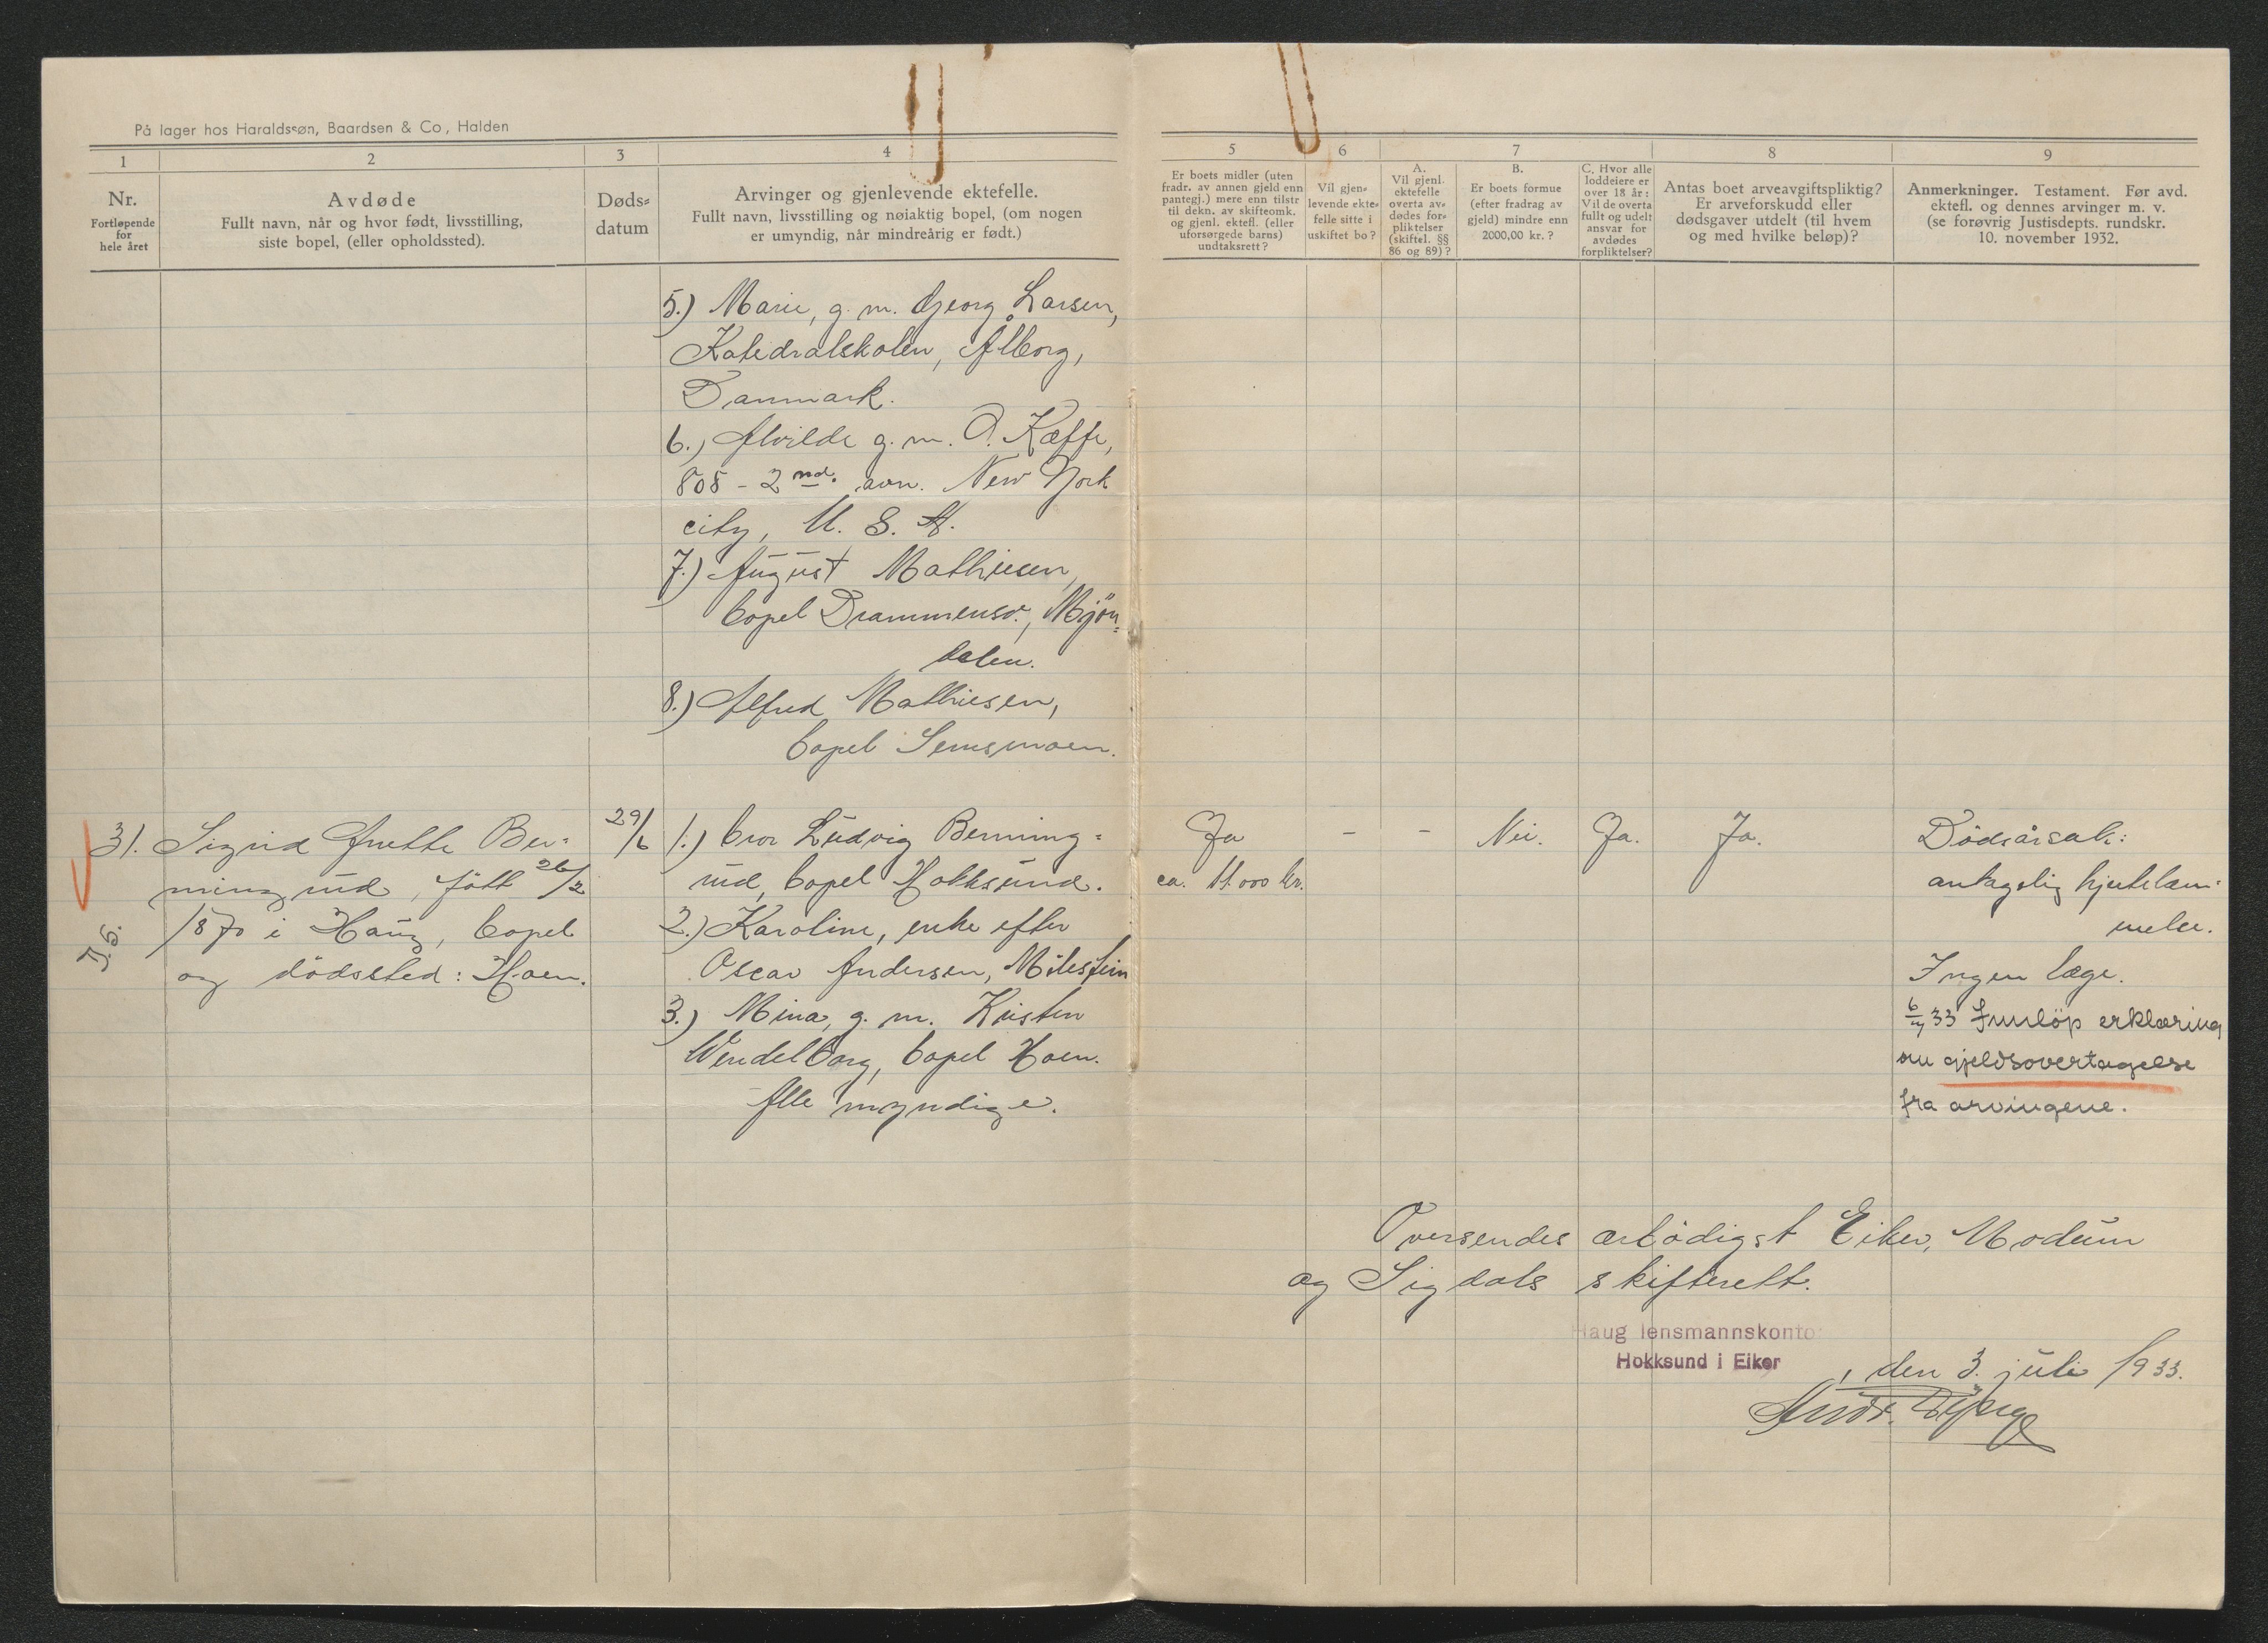 På lager hos Haraldssøn, Baardsen & Co, Halden
1
2
3
4
5
6
7
8
9
Nr.
Fortløpende
for
hele året
Avdøde
Fullt navn, når og hvor født, livsstilling,
siste bopel, (eller opholdssted).
Døds-
datum
Arvinger og gjenlevende ektefelle.
Fullt navn, livsstilling og nøiaktig bopel, (om nogen
er umyndig, når mindreårig er født.)
Er boets midler (uten
fradr. av annen gjeld enn
pantegj.) mere enn tilstr
til dekn. av skifteomk.
og gjenl. ektefl. (eller
uforsørgede barns)
undtaksrett?
Vil gjen-
levende ekte-
felle sitte i
uskiftet bo?
A.
Vil gjenl.
ektefelle
overta av-
dødes for-
pliktelser
(skiftel. §§
86 og 89)?
B.
Er boets formue
(efter fradrag av
gjeld) mindre enn
2000,00 kr.?
C. Hvor alle
loddeiere er
over 18 år:
Vil de overta
fullt og udelt
ansvar for
avdødes
forpliktelser?
Antas boet arveavgiftspliktig?
Er arveforskudd eller
dødsgaver utdelt (til hvem
og med hvilke beløp)?
Anmerkninger. Testament. Før avd.
ektefl. og dennes arvinger m. v.
(se forøvrig Justisdepts. rundskr.
10. november 1932.
5.) Marie, g. m. Georg Larsen,
Katedralskolen, Ålborg,
Danmark.
6.) Alvilde g. m. O. Kæffe,
808 - 2nd. avn. New York
city, U. S. A.
7.) August Mathiesen,
bopel Drammensv., Mjön-
dalen.
8.) Alfred Mathiesen,
bopel Semsmoen.
31. Sigrid Anette Ber-
ningrud, fött 26/2
1870 i Haug, bopel
og dödssted: Hoen.
29/6
1.) bror Ludvig Berning-
rud, bopel Hokksund.
2.) Karoline, enke efter
Oscar Andersen, Milestein
3.) Mina, g. m. Kristen
Wendelborg, bopel Hoen.
Alle myndige.
Ja
ca. 11.000 kr.
-
-
Nei.
Ja.
Ja.
Dödsårsak:
antagelig hjertelam-
melse.
Ingen læge.
6/7 33 Innlöp erklæring
om gjeldsovertagelse
fra arvingene.
Oversendes ærbödigst Eiker, Modum
og Sigdals skifterett.
Haug lensmannskontor
Hokksund i Eiker
, den 3. juli 1933.